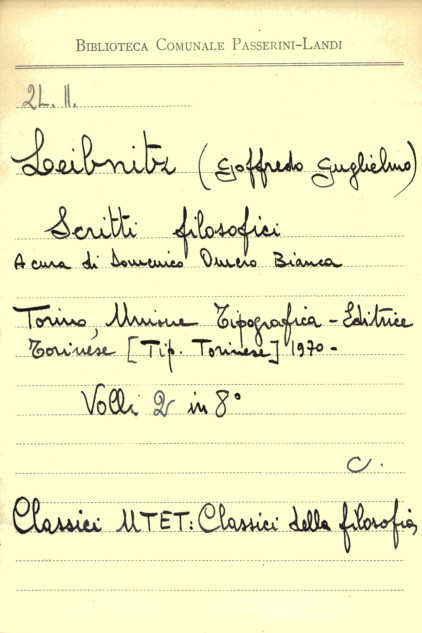 BIBLIOTECA COMUNALE PASSERINI-LANDI
2L. II.
Leibnitz (Goffredo Guglielmo)
Scritti filosofici
A cura di Domenico Omero Bianca
Torino, Unione Tipografica - Editrice
Torinese [Tip. Torinese] 1970 -
Volli 2 in 8°
C.
Classici UTET: Classici della filosofia,